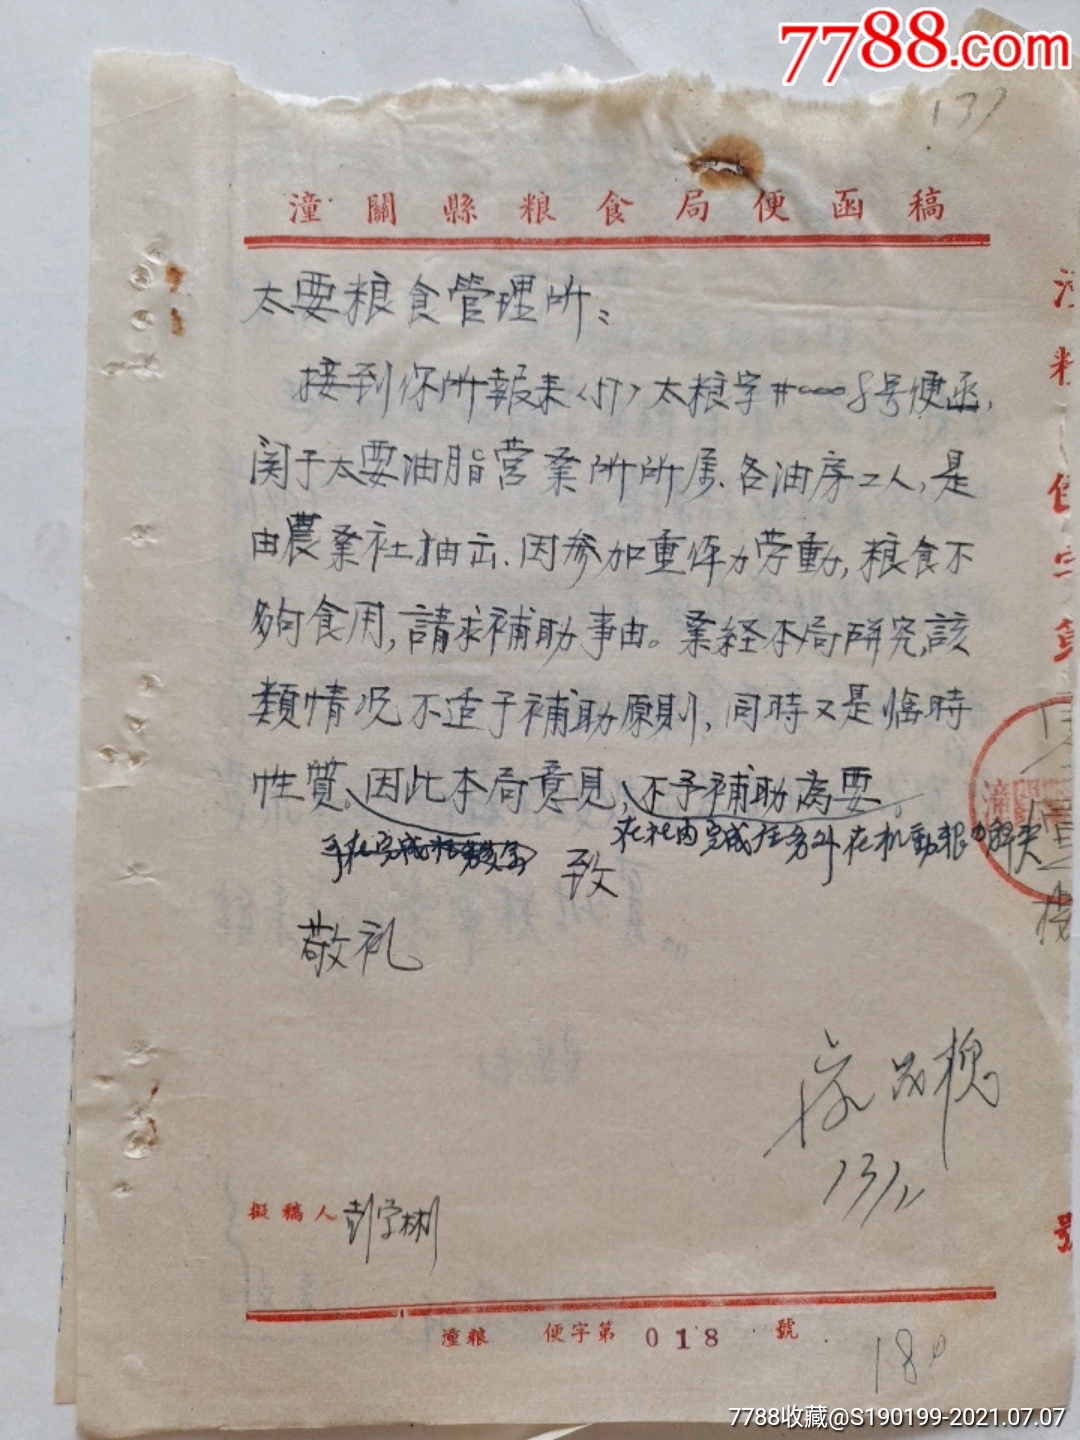 7788.com
137
潼關縣粮食局便函稿
太要粮食管理所：
接到你所報来〈57〉太粮字#0008号便函，
関于太要油脂营業所所属、各油房工人，是
由農業社抽出、因参加重体力劳動，粮食不
够食用，請求補助事由。業経本局研究，該
類情况不适于補助原則，同時又是临時
性質、因此本局意見，不予補助為要。
在社内完成任务外在机動粮内解决
致
敬礼
13/2
擬稿人 彭学彬
潼粮 便字第 018 號
號
180
7788收藏@S190199-2021.07.07